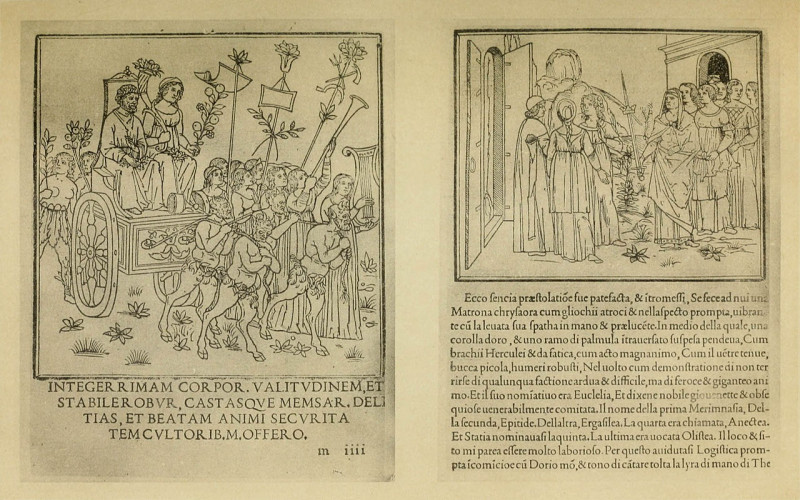 INTEGERRIMAM CORPOR. VALITVDINEM, ET
STABILE ROBVR, CASTASQVE MEMSAR. DELI
TIAS, ET BEATAM ANIMI SECVRITA
TEM CVLTORIB. M. OFFERO.
m iiii
Ecco sencia præstolatiõe fue patefacta, & ĩtromessi, Se fece ad nui una
Matrona chrysaora cum gliochii atroci & nellaspecto prompta, uibran
te cũ la leuata sua spatha in mano & prælucẽte. In medio della quale, una
corolla doro, & uno ramo di palmula ĩtrauersato suspesa pendeua, Cum
brachii Herculei & da fatica, cum acto magnanimo, Cum il uẽtre tenue,
bucca picola, humeri robusti, Nel uolto cum demonstratione di non ter
rirse di qualunqua factione ardua & difficile, ma di feroce & giganteo ani
mo. Et il suo nomĩatiuo era Euclelia, Et dixene nobile giouenette & obse
quiose uenerabilmente comitata. Il nome della prima Merimnasia, Del-
la secunda, Epitide. Dellaltra, Ergasilea. La quarta era chiamata, Anectea.
Et Statia nominauasi la quinta. La ultima era uocata Olistea. Il loco & si-
to mi parea essere molto laborioso. Per questo auidutasi Logistica prom-
pta ĩscomĩcioe cũ Dorio mõ, & tono di cãtare tolta la lyra di mano di The